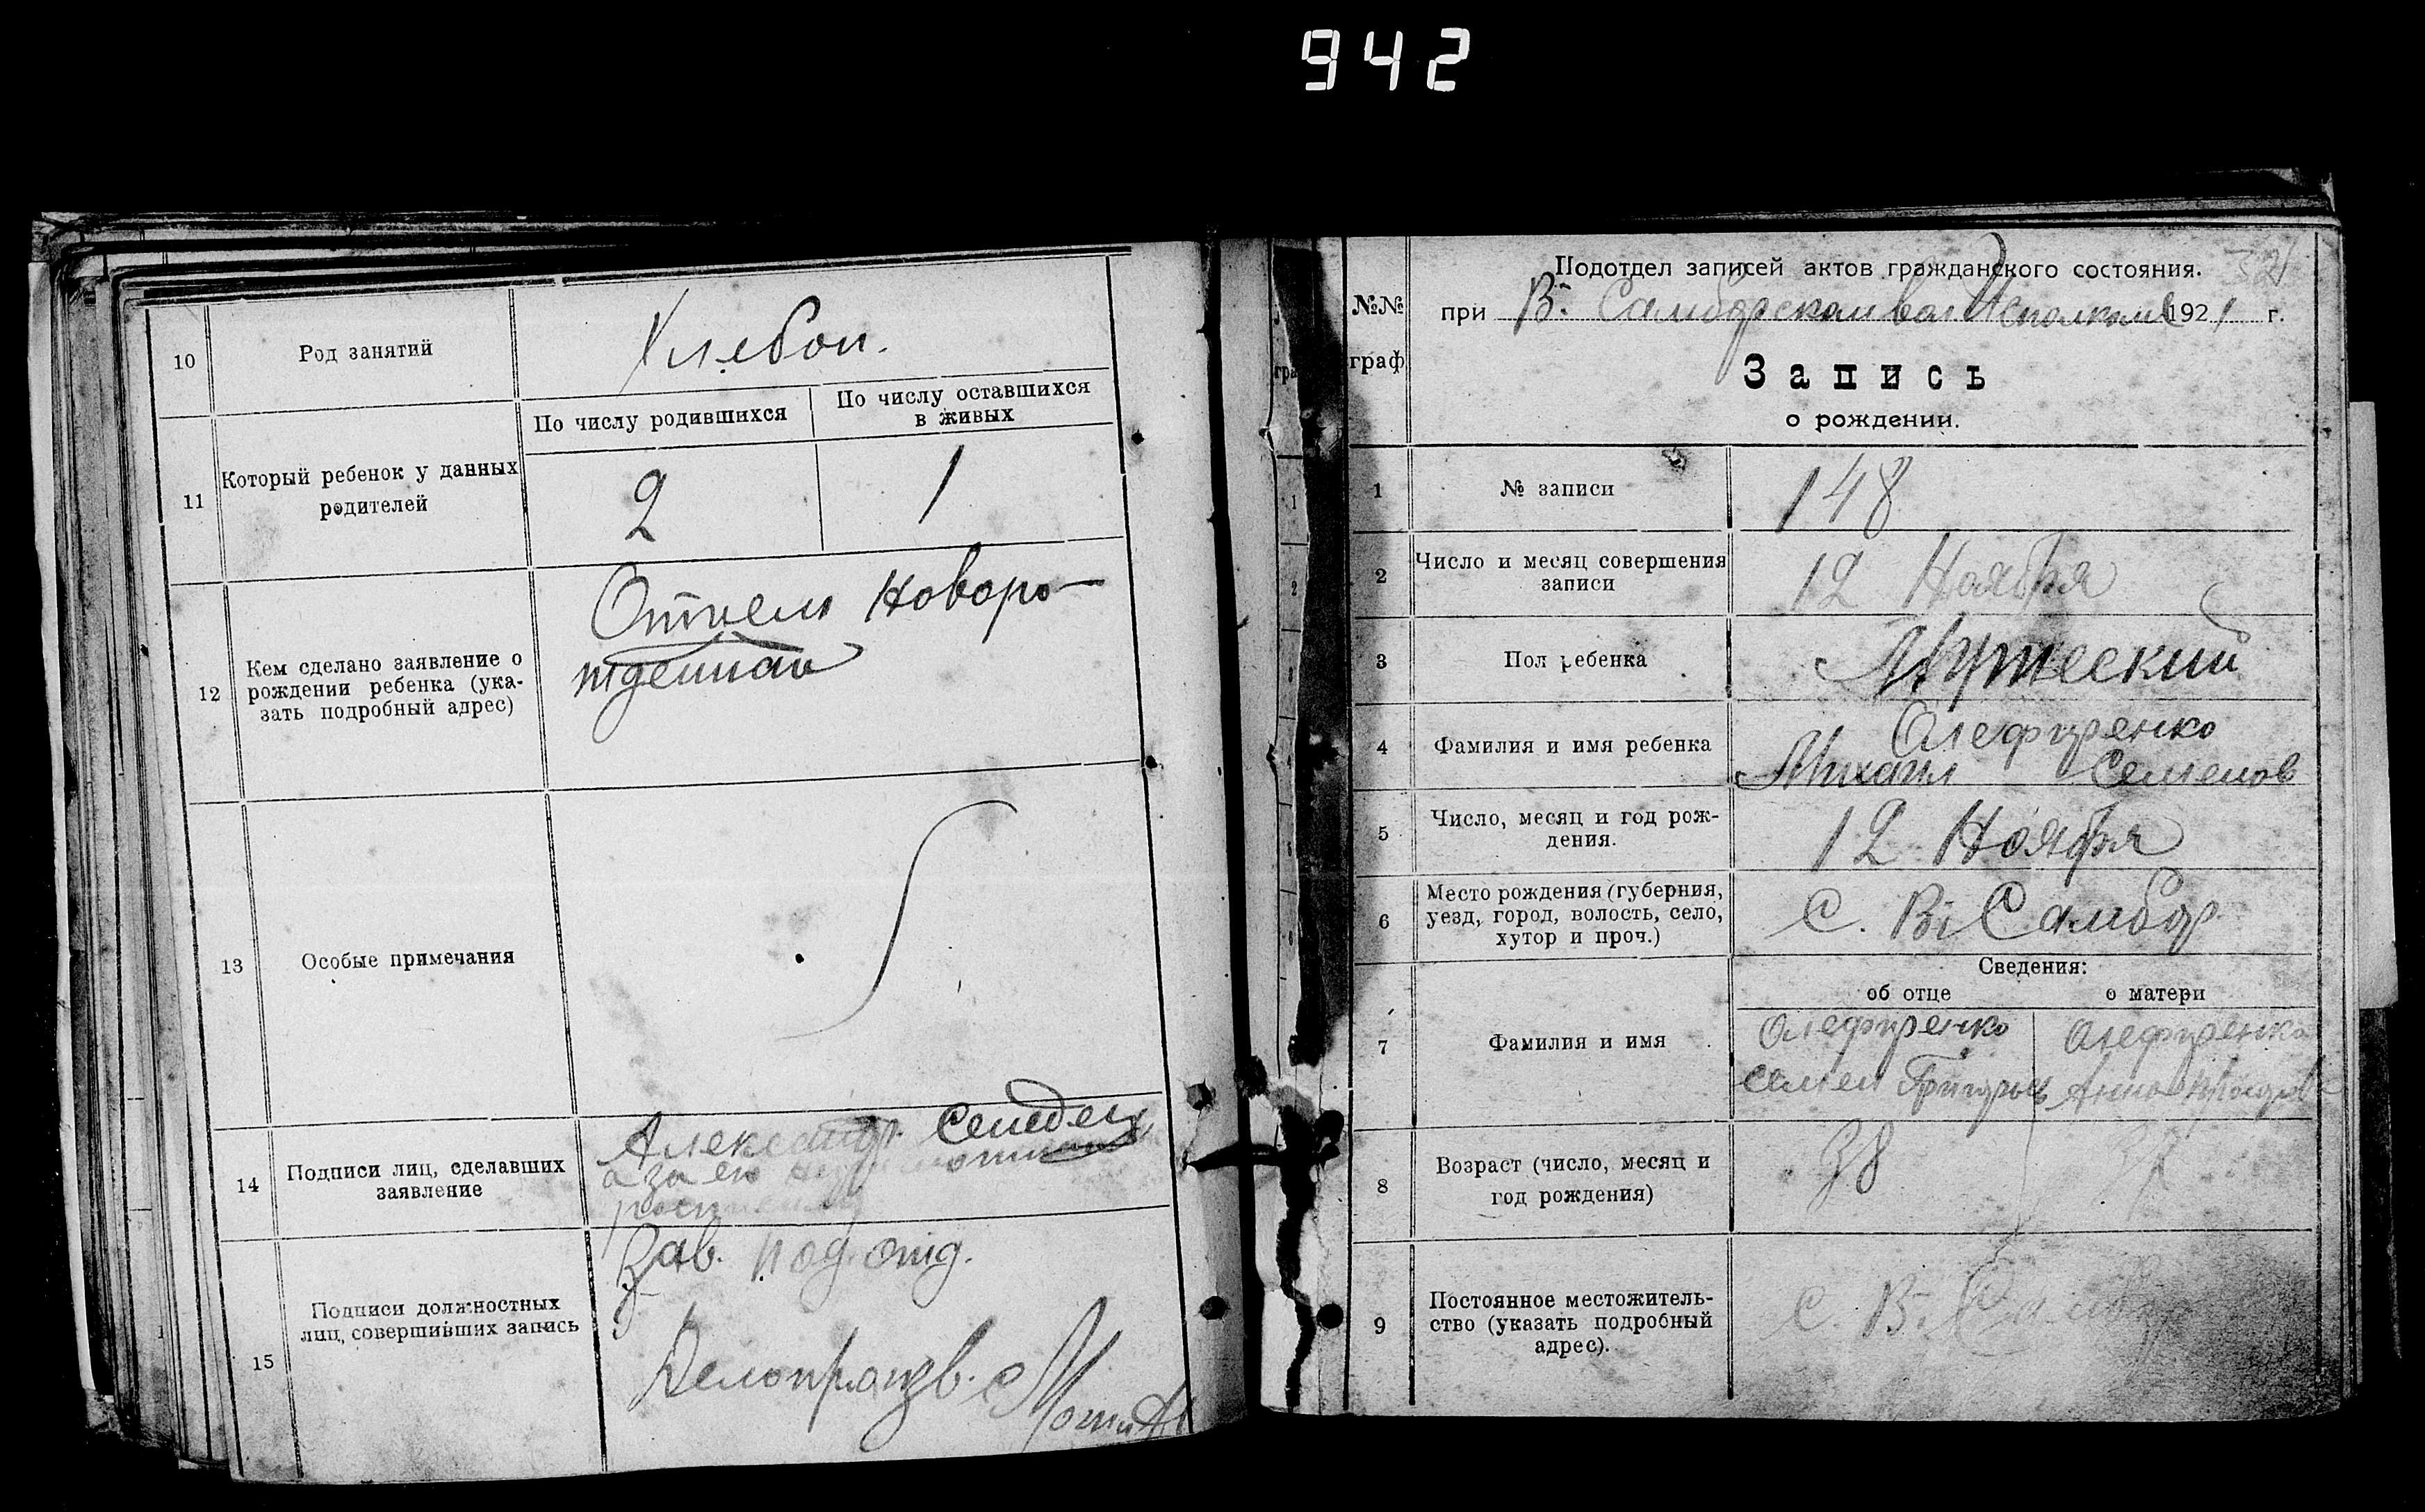 942
10
Род занятий
Хлебоп.
11
Который ребенок у данных
родителей
По числу родившихся
По числу оставшихся
в живых
2
1
12
Кем сделано заявление о
рождении ребенка (ука-
зать подробный адрес)
Отцем Новоро-
жденнаго
13
Особые примечания
14
Подписи лиц, сделавших
заявление
Александр
а за его
15
Подписи должностных
лиц, совершивших запись
Зав. Под. отд.
Делопроизв.
№№
граф
Подотдел записей актов гражданского состояния.
32
при В.- Самборском вол Исполкоме 1921 г.
Запись
о рождении.
1
№ записи
148
2
Число и месяц совершения
записи
12 Ноября
3
Пол ребенка
Мужеский
4
Фамилия и имя ребенка
Олефиренко
Михаил Семенов
5
Число, месяц и год рож-
дения.
12 Ноября
6
Место рождения (губерния,
уезд, город, волость, село,
хутор и проч.)
С. В. Самбор
Сведения:
об отце
о матери
7
Фамилия и имя
Олефиренко
Семен Григорьев
Олефиренко
Анна
8
Возраст (число, месяц и
год рождения)
38
9
Постоянное местожитель-
ство (указать подробный
адрес).
С. В. Самбор